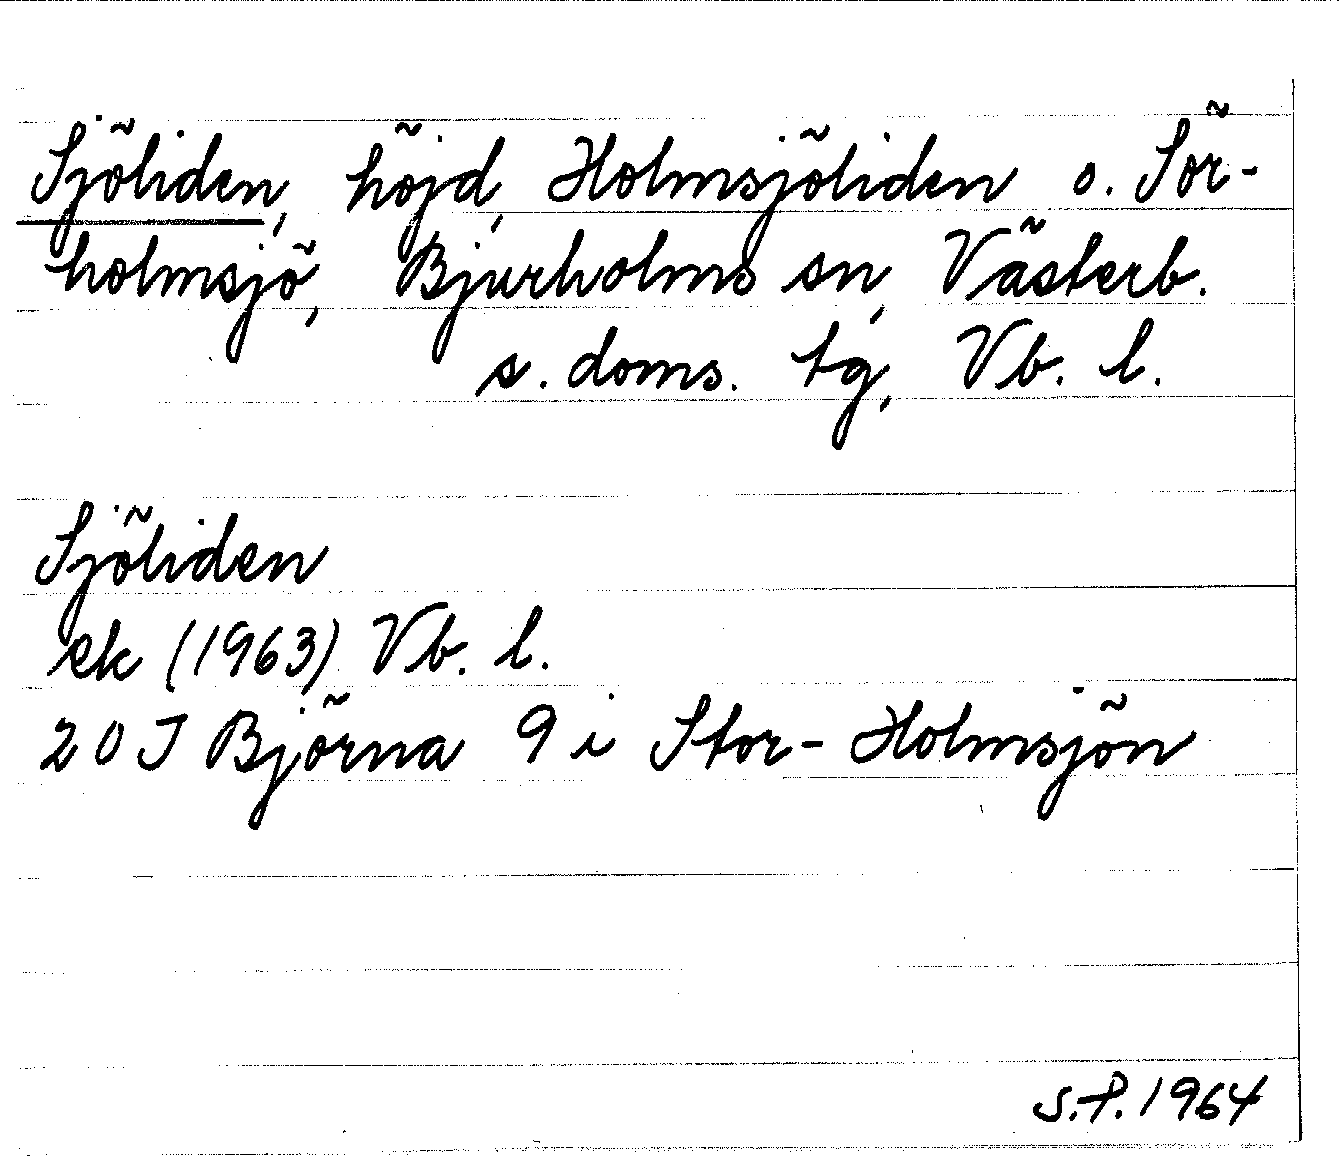 Sjöliden, höjd, Holmsjöliden o. Sör-
holmsjö, Bjurholms sn, Västerb.
s. doms. tg, Vb. l.
Sjöliden
ek (1963) Vb. l.
20 J Björna 9 i Stor-Holmsjön
S.P. 1964